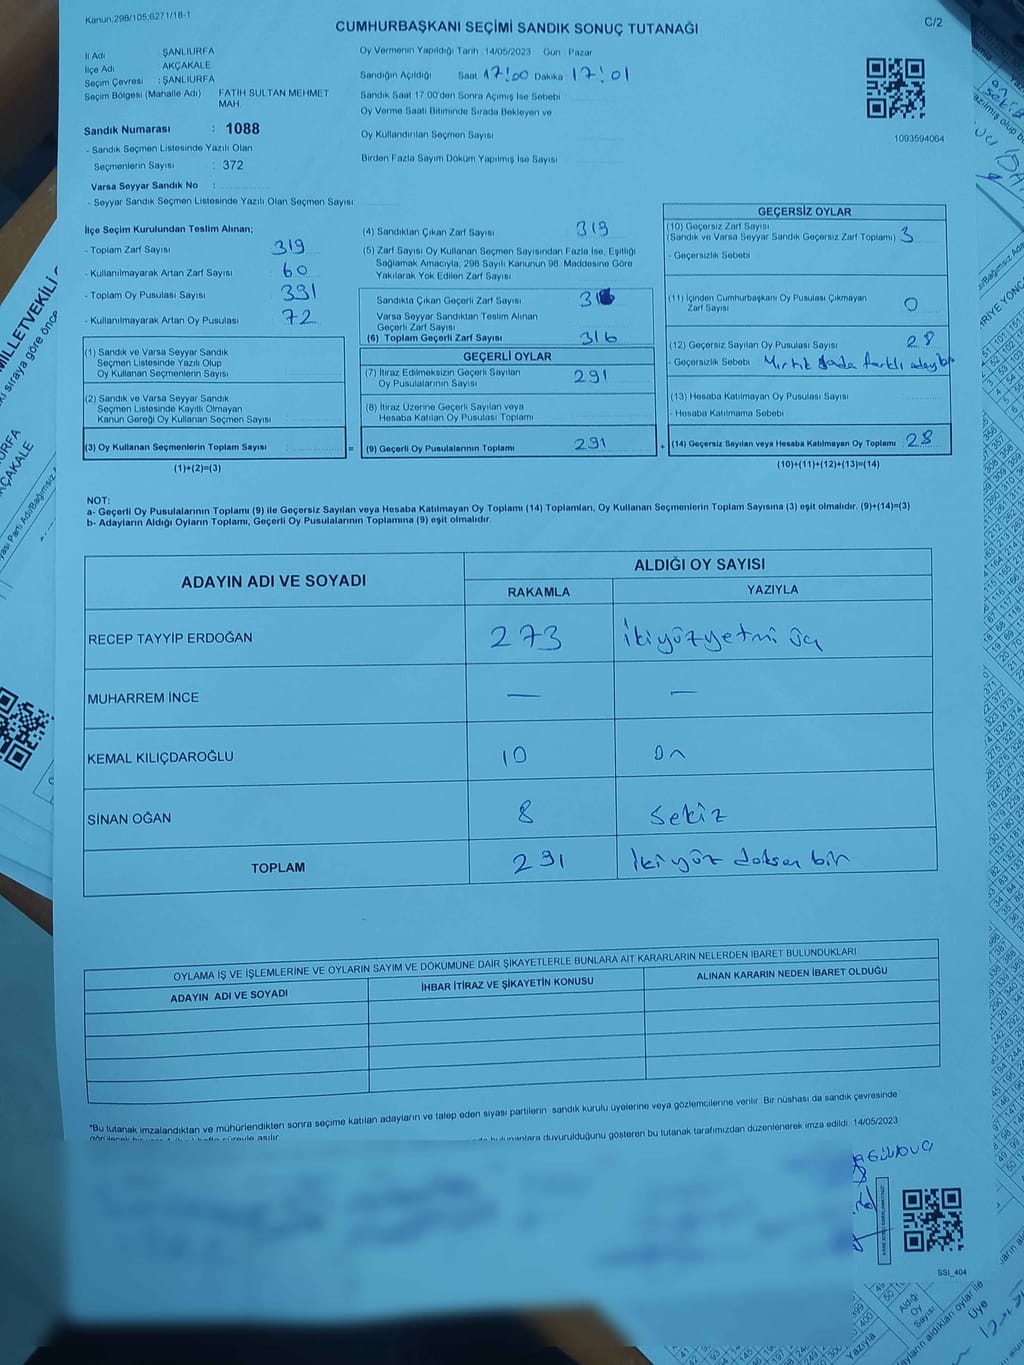 Kanun,298/105,6271/18-1
CUMHURBAŞKANI SEÇİMİ SANDIK SONUÇ TUTANAĞI
C/2
İl Adı ŞANLIURFA
İlçe Adı AKÇAKALE
Seçim Çevresi : ŞANLIURFA
Seçim Bölgesi (Mahalle Adı) FATİH SULTAN MEHMET
MAH.
Sandık Numarası : 1088
- Sandık Seçmen Listesinde Yazılı Olan
Seçmenlerin Sayısı : 372
Varsa Seyyar Sandık No :
- Seyyar Sandık Seçmen Listesinde Yazılı Olan Seçmen Sayısı
Oy Vermenin Yapıldığı Tarih 14/05/2023 Gün : Pazar
Sandığın Açıldığı Saat 17:00 Dakika 17:01
Sandık Saat 17:00'den Sonra Açımış İse Sebebi
Oy Verme Saati Bitiminde Sırada Bekleyen ve
Oy Kullandırılan Seçmen Sayısı
Birden Fazla Sayım Döküm Yapılmış İse Sayısı
1093594064
İlçe Seçim Kurulundan Teslim Alınan;
- Toplam Zarf Sayısı 319
- Kullanılmayarak Artan Zarf Sayısı 60
- Toplam Oy Pusulası Sayısı 391
- Kullanılmayarak Artan Oy Pusulası 72
(1) Sandık ve Varsa Seyyar Sandık
Seçmen Listesinde Yazılı Olup
Oy Kullanan Seçmenlerin Sayısı
(2) Sandık ve Varsa Seyyar Sandık
Seçmen Listesinde Kayıtlı Olmayan
Kanun Gereği Oy Kullanan Seçmen Sayısı
(3) Oy Kullanan Seçmenlerin Toplam Sayısı =
(1)+(2)=(3)
(4) Sandıktan Çıkan Zarf Sayısı 319
(5) Zarf Sayısı Oy Kullanan Seçmen Sayısından Fazla İse, Eşitliği
Sağlamak Amacıyla, 298 Sayılı Kanunun 98. Maddesine Göre
Yakılarak Yok Edilen Zarf Sayısı
Sandıkta Çıkan Geçerli Zarf Sayısı
Varsa Seyyar Sandıktan Teslim Alınan
Geçerli Zarf Sayısı
(6) Toplam Geçerli Zarf Sayısı 316
GEÇERLİ OYLAR
(7) İtiraz Edilmeksizin Geçerli Sayılan
Oy Pusulalarının Sayısı 291
(8) İtiraz Üzerine Geçerli Sayılan veya
Hesaba Katılan Oy Pusulası Toplamı
(9) Geçerli Oy Pusulalarının Toplamı 291 +
GEÇERSİZ OYLAR
(10) Geçersiz Zarf Sayısı
(Sandık ve Varsa Seyyar Sandık Geçersiz Zarf Toplamı) 3
- Geçersizlik Sebebi
(11) İçinden Cumhurbaşkanı Oy Pusulası Çıkmayan
Zarf Sayısı 0
(12) Geçersiz Sayılan Oy Pusulası Sayısı 28
- Geçersizlik Sebebi farklı
(13) Hesaba Katılmayan Oy Pusulası Sayısı
- Hesaba Katılmama Sebebi
(14) Geçersiz Sayılan veya Hesaba Katılmayan Oy Toplamı 28
(10)+(11)+(12)+(13)=(14)
NOT:
a- Geçerli Oy Pusulalarının Toplamı (9) ile Geçersiz Sayılan veya Hesaba Katılmayan Oy Toplamı (14) Toplamları, Oy Kullanan Seçmenlerin Toplam Sayısına (3) eşit olmalıdır. (9)+(14)=(3)
b- Adayların Aldığı Oyların Toplamı, Geçerli Oy Pusulalarının Toplamına (9) eşit olmalıdır.
ADAYIN ADI VE SOYADI ALDIĞI OY SAYISI
RAKAMLA YAZIYLA
RECEP TAYYİP ERDOĞAN 273 İkiyüzyetmiş üç
MUHARREM İNCE — —
KEMAL KILIÇDAROĞLU 10 On
SİNAN OĞAN 8 Sekiz
TOPLAM 291 İki yüz doksan bir
OYLAMA İŞ VE İŞLEMLERİNE VE OYLARIN SAYIM VE DÖKÜMÜNE DAİR ŞİKAYETLERLE BUNLARA AİT KARARLARIN NELERDEN İBARET BULUNDUKLARI
ADAYIN ADI VE SOYADI İHBAR İTİRAZ VE ŞİKAYETİN KONUSU ALINAN KARARIN NEDEN İBARET OLDUĞU
*Bu tutanak imzalandıktan ve mühürlendikten sonra seçime katılan adayların ve talep eden siyasi partilerin sandık kurulu üyelerine veya gözlemcilerine verilir. Bir nüshası da sandık çevresinde
duyurulduğunu gösteren bu tutanak tarafımızdan düzenlenerek imza edildi. 14/05/2023
SSI_404
MİLLETVEKİLİ
ŞANLIURFA
AKÇAKALE
Aldığı
Oy
Sayısı
Yazıyla
Üye